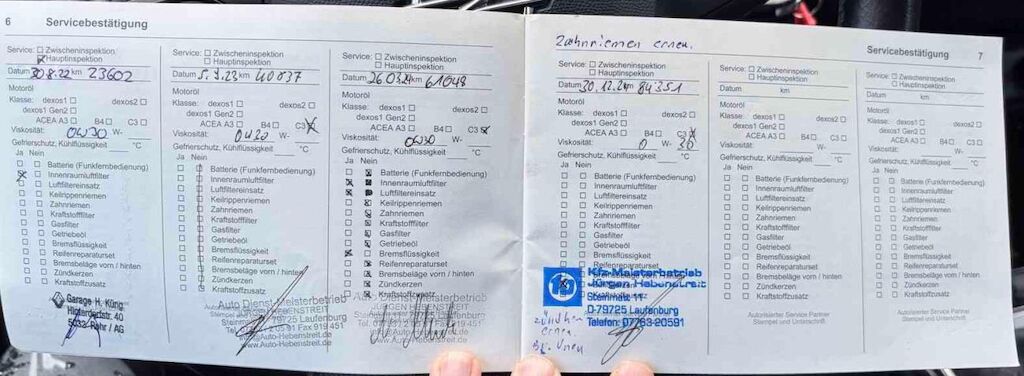 6 Servicebestätigung
Service: □ Zwischeninspektion
☒ Hauptinspektion
Datum 30.8.22 km 23602
Motoröl
Klasse: dexos1 □ dexos2 □
dexos1 Gen2 □
ACEA A3 □ B4 □ C3 □
Viskosität: 0W30 W-
Gefrierschutz, Kühlflüssigkeit °C
Ja Nein
Batterie (Funkfernbedienung)
Innenraumluftfilter
Luftfiltereinsatz
Keilrippenriemen
Zahnriemen
Kraftstofffilter
Gasfilter
Getriebeöl
Bremsflüssigkeit
Reifenreparaturset
Bremsbeläge vorn / hinten
Zündkerzen
Kraftstoffzusatz
Garage H. Küng
Hinterdorfstr. 40
Service: □ Zwischeninspektion
□ Hauptinspektion
Datum 5.9.23 km 40037
Motoröl
Klasse: dexos1 □ dexos2 □
dexos1 Gen2 □
ACEA A3 □ B4 □ C3 ☒
Viskosität: 0W20 W-
Gefrierschutz, Kühlflüssigkeit °C
Ja Nein
Batterie (Funkfernbedienung)
Innenraumluftfilter
Luftfiltereinsatz
Keilrippenriemen
Zahnriemen
Kraftstofffilter
Gasfilter
Getriebeöl
Bremsflüssigkeit
Reifenreparaturset
Bremsbeläge vorn / hinten
Zündkerzen
Kraftstoffzusatz
Auto Dienst-Meisterbetrieb
JÜRGEN HEBENSTREIT
Steinmatt 11 79725 Laufenburg
www.Auto-Hebenstreit.de
Service: □ Zwischeninspektion
□ Hauptinspektion
Datum 26.03.24 km 61048
Motoröl
Klasse: dexos1 □ dexos2 □
dexos1 Gen2 □
ACEA A3 □ B4 □ C3 ☒
Viskosität: 0W30 W-
Gefrierschutz, Kühlflüssigkeit °C
Ja Nein
Batterie (Funkfernbedienung)
Innenraumluftfilter
Luftfiltereinsatz
Keilrippenriemen
Zahnriemen
Kraftstofffilter
Gasfilter
Getriebeöl
Bremsflüssigkeit
Reifenreparaturset
Bremsbeläge vorn / hinten
Zündkerzen
Kraftstoffzusatz
Auto Dienst-Meisterbetrieb
JÜRGEN HEBENSTREIT
Steinmatt 11 79725 Laufenburg
www.Auto-Hebenstreit.de
Zahnriemen erneu.
Servicebestätigung 7
Service: □ Zwischeninspektion
□ Hauptinspektion
Datum 30.12.24 km 84351
Motoröl
Klasse: dexos1 □ dexos2 □
dexos1 Gen2 □
ACEA A3 □ B4 □ C3 ☒
Viskosität: 0 W- 30
Gefrierschutz, Kühlflüssigkeit °C
Ja Nein
Batterie (Funkfernbedienung)
Innenraumluftfilter
Luftfiltereinsatz
Keilrippenriemen
Zahnriemen
Kraftstofffilter
Gasfilter
Getriebeöl
Bremsflüssigkeit
Reifenreparaturset
Kfz-Meisterbetrieb
Jürgen Hebenstreit
Steinmatt 11
D-79725 Laufenburg
Telefon: 07763-20591
erneu
Service: □ Zwischeninspektion
□ Hauptinspektion
Datum km
Motoröl
Klasse: dexos1 □ dexos2 □
dexos1 Gen2 □
ACEA A3 □ B4 □ C3 □
Viskosität: W-
Gefrierschutz, Kühlflüssigkeit °C
Ja Nein
Batterie (Funkfernbedienung)
Innenraumluftfilter
Luftfiltereinsatz
Keilrippenriemen
Zahnriemen
Kraftstofffilter
Gasfilter
Getriebeöl
Bremsflüssigkeit
Reifenreparaturset
Bremsbeläge vorn / hinten
Zündkerzen
Kraftstoffzusatz
Autorisierter Service Partner
Stempel und Unterschrift
Service: □ Zwischeninspektion
□ Hauptinspektion
Datum km
Motoröl
Klasse: dexos1 □ dexos2 □
dexos1 Gen2 □
ACEA A3 □ B4 □ C3 □
Viskosität: W-
Gefrierschutz, Kühlflüssigkeit °C
Ja Nein
Batterie (Funkfernbedienung)
Innenraumluftfilter
Luftfiltereinsatz
Keilrippenriemen
Zahnriemen
Kraftstofffilter
Gasfilter
Getriebeöl
Bremsflüssigkeit
Reifenreparaturset
Bremsbeläge vorn / hinten
Zündkerzen
Kraftstoffzusatz
Autorisierter Service Partner
Stempel und Unterschrift